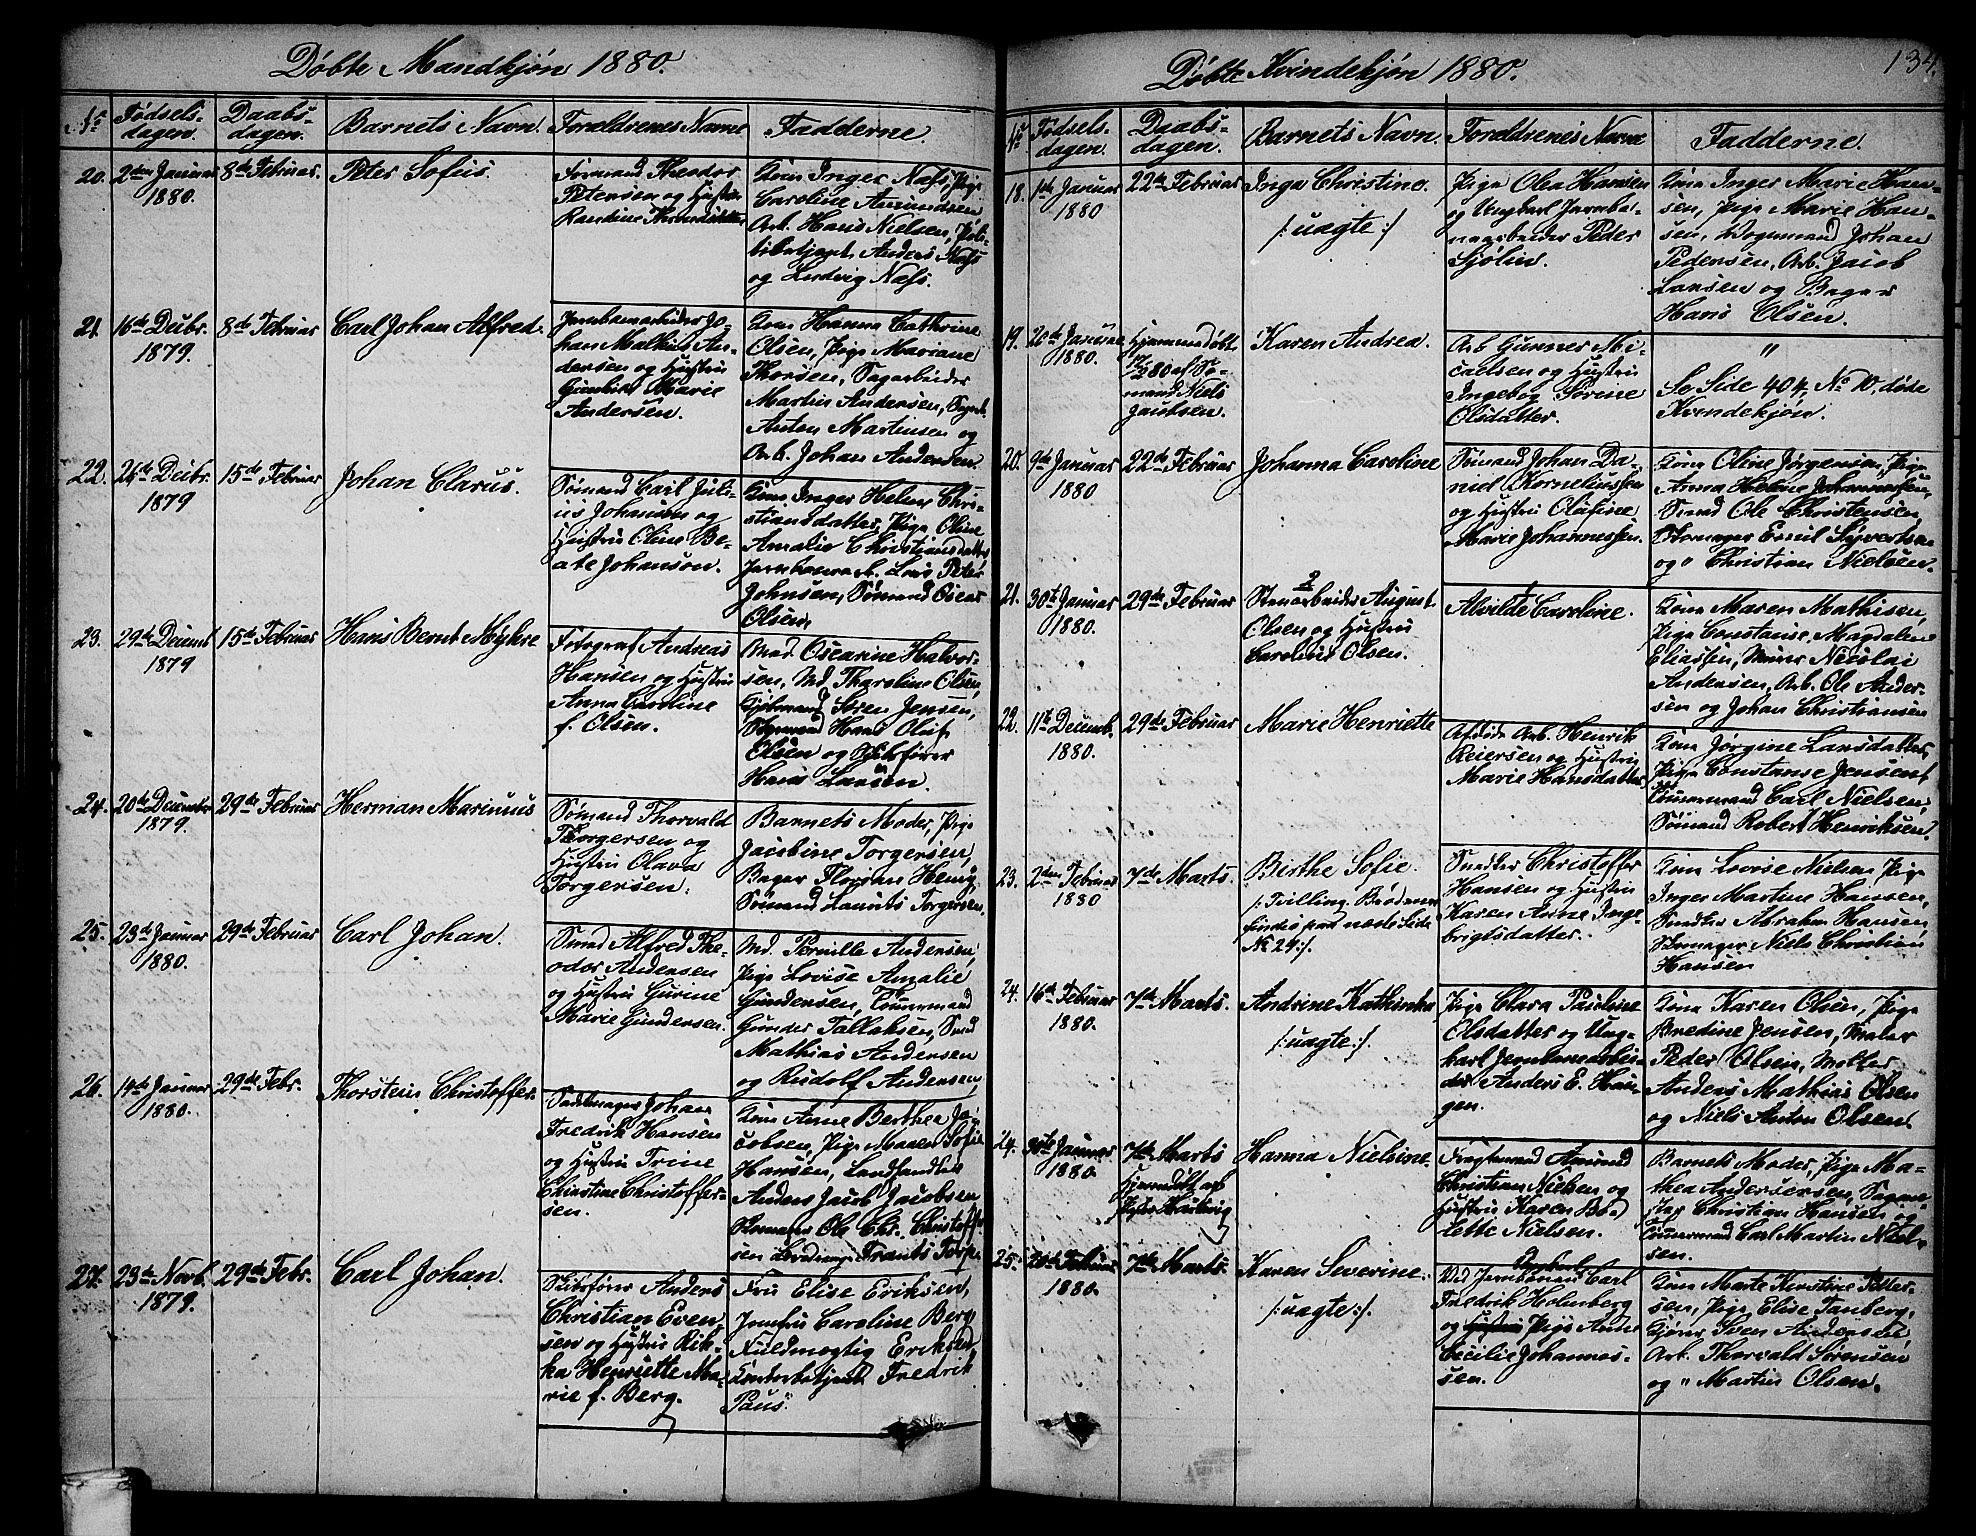 Døbte Mandkjøn 1880.
No Fødsels-dagen. Daabs-dagen. Barnets Navn. Forældrenes Navne Fadderne.
20. 2den Januar 1880. 8de Februar. Peter Sofus.
Formand Theodor
Petersen og Hustru
Kone Inger Næss, Pige
Caroline Amundsen
Arb. Hans Nielsen, Poli-
tibetjent Anders Næss
og Ludvig Næss.
21. 16de Decbr. 1879. 8de Februar Carl Johan Alfred.
Jernbanearbeider Jo-
han Malkus An-
dersen og Hustru
Gunhild Marie
Andersen.
Kone Hanna Cathrine
Olsen, Pige Mariane
Thorsen, Sagarbeider
Martin Andersen, Sagarb.
Anton Martensen og
Arb. Johan Andersen.
22. 26de Decbr. 1879 15de Februar Johan Clarus.
Sømand Carl Juli-
us Johansen og
Hustru Oline Be-
ate Johanson.
Kone Inger Helene Chri-
stiansdatter, Pige Oline
Amalie Christiansdatter,
Jernbanearb. Lars Peter
Johnsen, Sømand Oscar
Olsen.
23. 29de Decemb 1879 15de Februar Hans Bernt Mykre
Fotograf Andreas
Hansen og Hustru
Anna Caroline
f. Olsen.
Mad. Oscarine Halvor-
sen, Md. Tharoline Olsen,
Sören Jensen,
Styrmand Hans Oluf
Olsen og Skibsfører
Hans Larsen.
24. 20de December 1879. 29de Februar Herman Marinius
Sømand Thorvald
Thorgersen og
Hustru Olava
Torgersen.
Barnets Moder, Pige
Jacobine Torgersen,
Bager Florian Henry,
Sømand Laurits Torgersen.
25. 23de Januar 1880. 29de Februar Carl Johan.
Smed Alfred The-
odor Andersen
og Hustru Gurine
Marie Gundersen.
Md. Pernille Andersen,
Pige Lovise Amalie
Gundersen, Tømmermand
Gunder Tallaksen, Smed
Mathias Andersen
og Rudolf Andersen,
26. 14de Januar 1880. 29de Febr. Thorstein Christoffer.
Sadelmager Johan
Fredrik Hansen
og Hustru Trine
Christine Christoffer-
sen.
Kone Anne Berthea Ja-
cobsen, Pige Maren Sofie
Hansen, Landhandler
Anders Jacob Jacobsen
Ole Chr. Christoffer-
sen Frants Torp.
27. 23de Novb. 1879. 29de Febr. Carl Johan.
Skibsfører Anders
Christian Even-
sen og Hustru Rik-
ka Henriette Ma-
rie f. Berg.
Fru Elise Eriksen,
Jomfru Caroline Berg
Fuldmægtig Eriksen,
Contorbetjent Fredrik
Paus.
Døbte Kvindekjøn 1880.
134.
No Fødsels-dagen. Daabs-dagen. Barnets Navn. Forældrenes Navne Fadderne.
18. 1ste Januar 1880 22de Februar Inga Christine.
/: uægte :/
Pige Olea Hansen
og Ungkarl Jernba-
nearbeider Peder
Sjölin.
Kone Inger Marie Han-
sen, Pige Marie Han-
sen, Vognmand Johan
Pedersen, Arb. Jacob
Larsen og Bager
Hans Olsen.
19. 20de Januar 1880. Hjemmedøbt
12/2 80 af Sø-
mand Niels
Jacobsen.
Karen Andrea.
Arb Gunner Mi-
caelsen og Hustru
Ingebog Sørine
Olsdatter.
"
Se Side 404, No 10, døde
Kvindekjøn.
20. 9de Januar 1880 22de Februar Johanna Caroline
Sømand Johan Da-
niel Korneliussen
og Hustru Olafine
Marie Johannessen.
Kone Oline Jørgensen, Pige
Anna Helene Johannessen,
Smed Ole Christensen
Skomager Emil Syvertsen
og " Christian Nielsen.
21. 30te Januar 1880. 29de Februar
2
Stenarbeider August
Olsen og Hustru
Caroline Olsen.
Alvilde Caroline.
Kone Maren Mathisen,
Pige Constanse Magdalene
Eliassen, Murer Nicolai
Andersen, Arb. Ole Ander-
sen og Johan Christiansen
22. 11te Decemb. 1880. 29de Februar Marie Henriette
Afdøde Arb. Henrik
Reiersen og Hustru
Marie Hansdatter
Kone Jørgine Larsdatter,
Pige Constanse Jensen,
Tømmermand Carl Nielsen,
Sømand Robert Henriksen.
23. 2den Februar 1880 7de Marts. Birthe Sofie.
/: Tvilling. Broderen
findes paa næste Side
No 24:/.
Snedker Christoffer
Hansen og Hustru
Karen Anne Inge-
brigtsdatter.
Kone Lovise Nielsen, Pige
Inger Martine Hansen,
Snedker Abraham Hansen,
Skomager Niels Christian
Hansen
24. 16de Februar 1880. 7de Marts. Andrine Kathinka
/: uægte :/.
Pige Clara Pauline
Olsdatter og Ung-
karl Jernbanearbei-
der Anders E. Hau-
gen.
Kone Karen Olsen, Pige
Bredine Jensen, Maler
Peder Olsen, Møller
Anders Mathias Olsen
og Niels Anton Olsen.
24. 30te Januar 1880. 7de Marts
Hjemmedøbt af
Hanna Nielsine.
Fragtemand Amund
Christian Nielsen og
Hustru Karen Bo-
lette Nielsen.
Barnets Moder, Pige Ma-
thea Andersensen,
Christian Hansen og
Tømmermand Carl Martin Niel-
sen.
25. Februar 1880. 7de Marts. Karen Severine.
/: uægte :/.
Ungkarl
Ved Jernbanen Carl
Fredrik Holmberg
og Hustru Pige Anne
Cecilie Johannes-
sen.
Kone Marte Kirstine Petter-
sen, Pige Elise Tanberg,
Sven Andersen
Arb. Thorvald Sørensen
og " Martin Olsen.